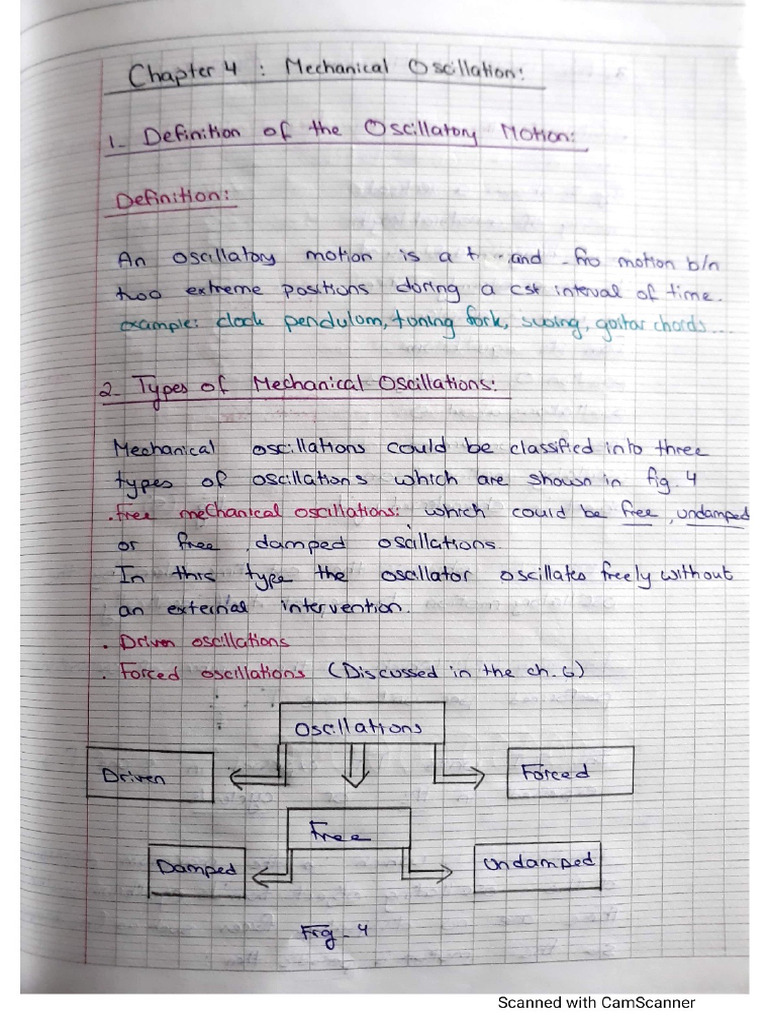 Chapter 4 : Mechanical Oscillation:
1_ Definition of the Oscillatory Motion:
Definition:
An oscillatory motion is a t and - fro motion b/n
two extreme positions during a cst interval of time.
example: clock pendulum, tuning fork, swing, guitar chords...
2_ Types of Mechanical Oscillations:
Mechanical oscillations could be classified into three
types of oscillations which are shown in fig. 4
. free mechanical oscillations: which could be free, undamped
or free, damped oscillations.
In this type the oscillator oscillates freely without
an external intervention.
. Driven oscillations
. Forced oscillations (Discussed in the ch. 6)
Oscillations
Driven
Forced
Free
Damped
Undamped
Fig - 4
Scanned with CamScanner